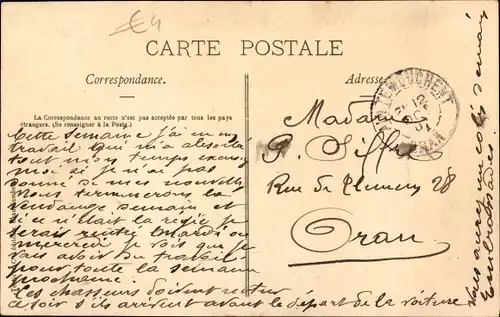 €4
CARTE POSTALE
Correspondance.
Adresse
La Correspondance au recto n'est pas acceptée par tous les pays
étrangers. (Se renseigner à la Poste.)
TEMOUCHENT
ORAN
Cette semaine j'ai eu un
travail qui m'a absorbé
tout mon temps excusez
moi si je n'ai pas
donné de mes nouvelles
Nous terminerons la
vendange demain et
si ce n'était la régie je
serais rentré mardi ou
mercredi je vois que je
vais avoir du travail
pour toute la semaine
prochaine.
Les chasseurs doivent rentrer
ce soir s'ils arrivent avant le départ de la voiture
Vous aurez un colis demain
Madame
G.
Rue de Clemens 28
Oran